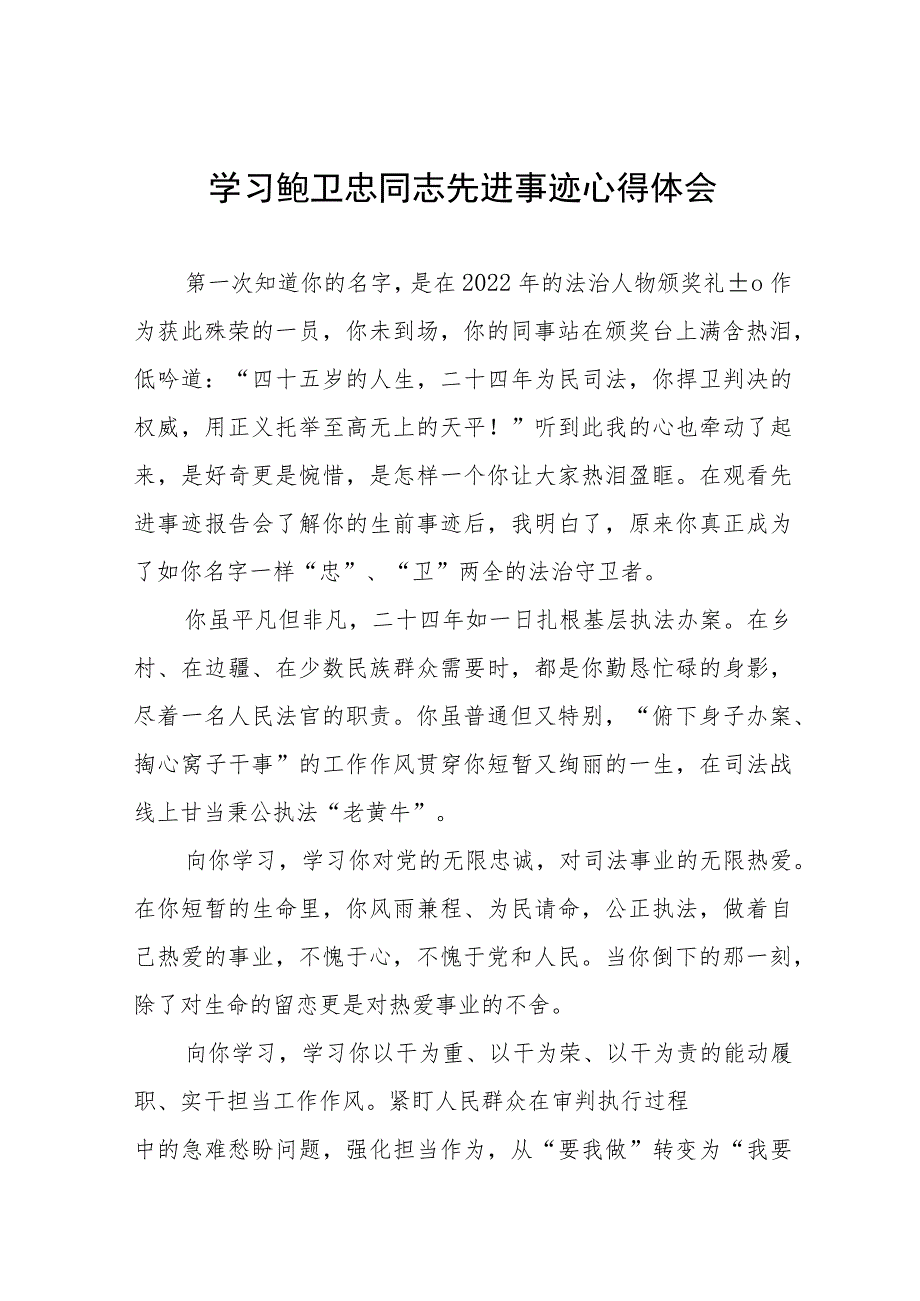 学习鲍卫忠同志先进事迹心得体会
第一次知道你的名字，是在2022年的法治人物颁奖礼±o作
为获此殊荣的一员，你未到场，你的同事站在颁奖台上满含热泪，
低吟道：“四十五岁的人生，二十四年为民司法，你捍卫判决的
权威，用正义托举至高无上的天平！”听到此我的心也牵动了起
来，是好奇更是惋惜，是怎样一个你让大家热泪盈眶。在观看先
进事迹报告会了解你的生前事迹后，我明白了，原来你真正成为
了如你名字一样“忠”、“卫”两全的法治守卫者。
你虽平凡但非凡，二十四年如一日扎根基层执法办案。在乡
村、在边疆、在少数民族群众需要时，都是你勤恳忙碌的身影，
尽着一名人民法官的职责。你虽普通但又特别，“俯下身子办案、
掏心窝子干事”的工作作风贯穿你短暂又绚丽的一生，在司法战
线上甘当秉公执法“老黄牛”。
向你学习，学习你对党的无限忠诚，对司法事业的无限热爱。
在你短暂的生命里，你风雨兼程、为民请命，公正执法，做着自
己热爱的事业，不愧于心，不愧于党和人民。当你倒下的那一刻，
除了对生命的留恋更是对热爱事业的不舍。
向你学习，学习你以干为重、以干为荣、以干为责的能动履
职、实干担当工作作风。紧盯人民群众在审判执行过程
中的急难愁盼问题，强化担当作为，从“要我做”转变为“我要